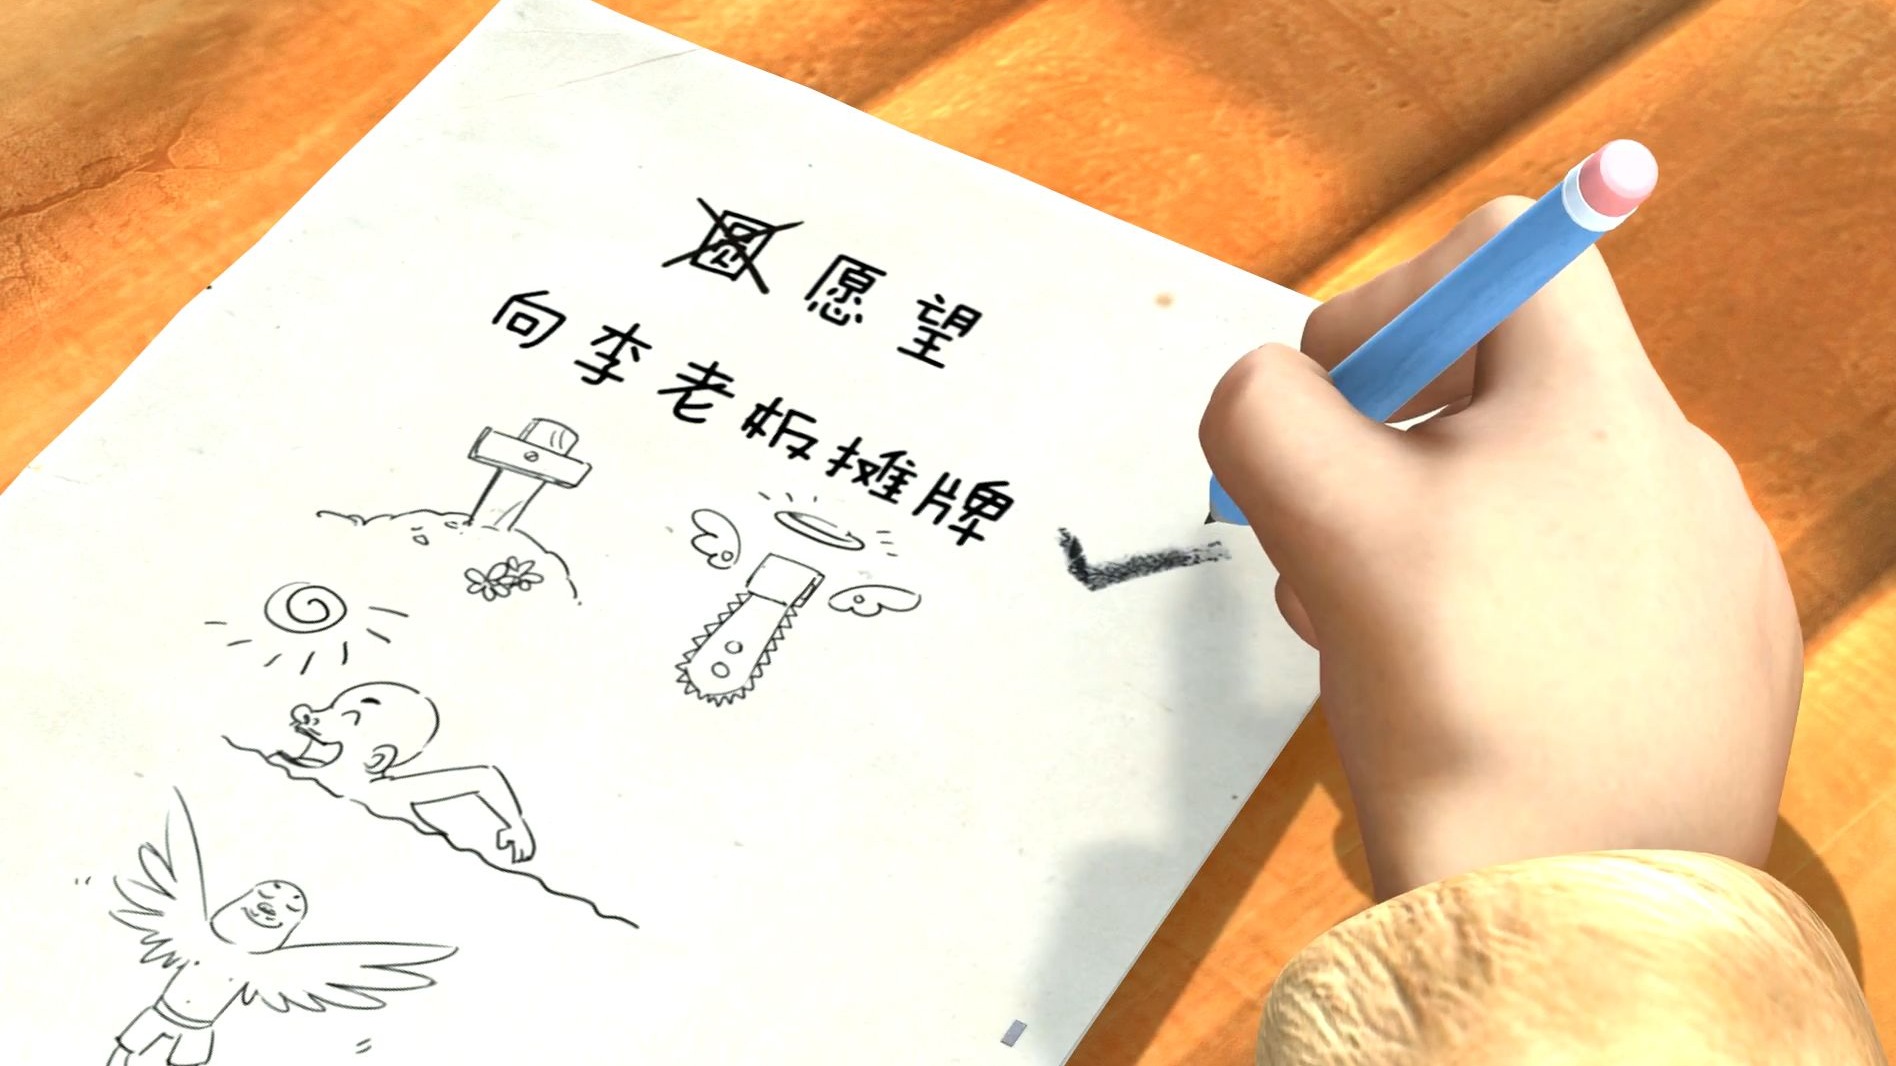 愿望
向李老板摊牌